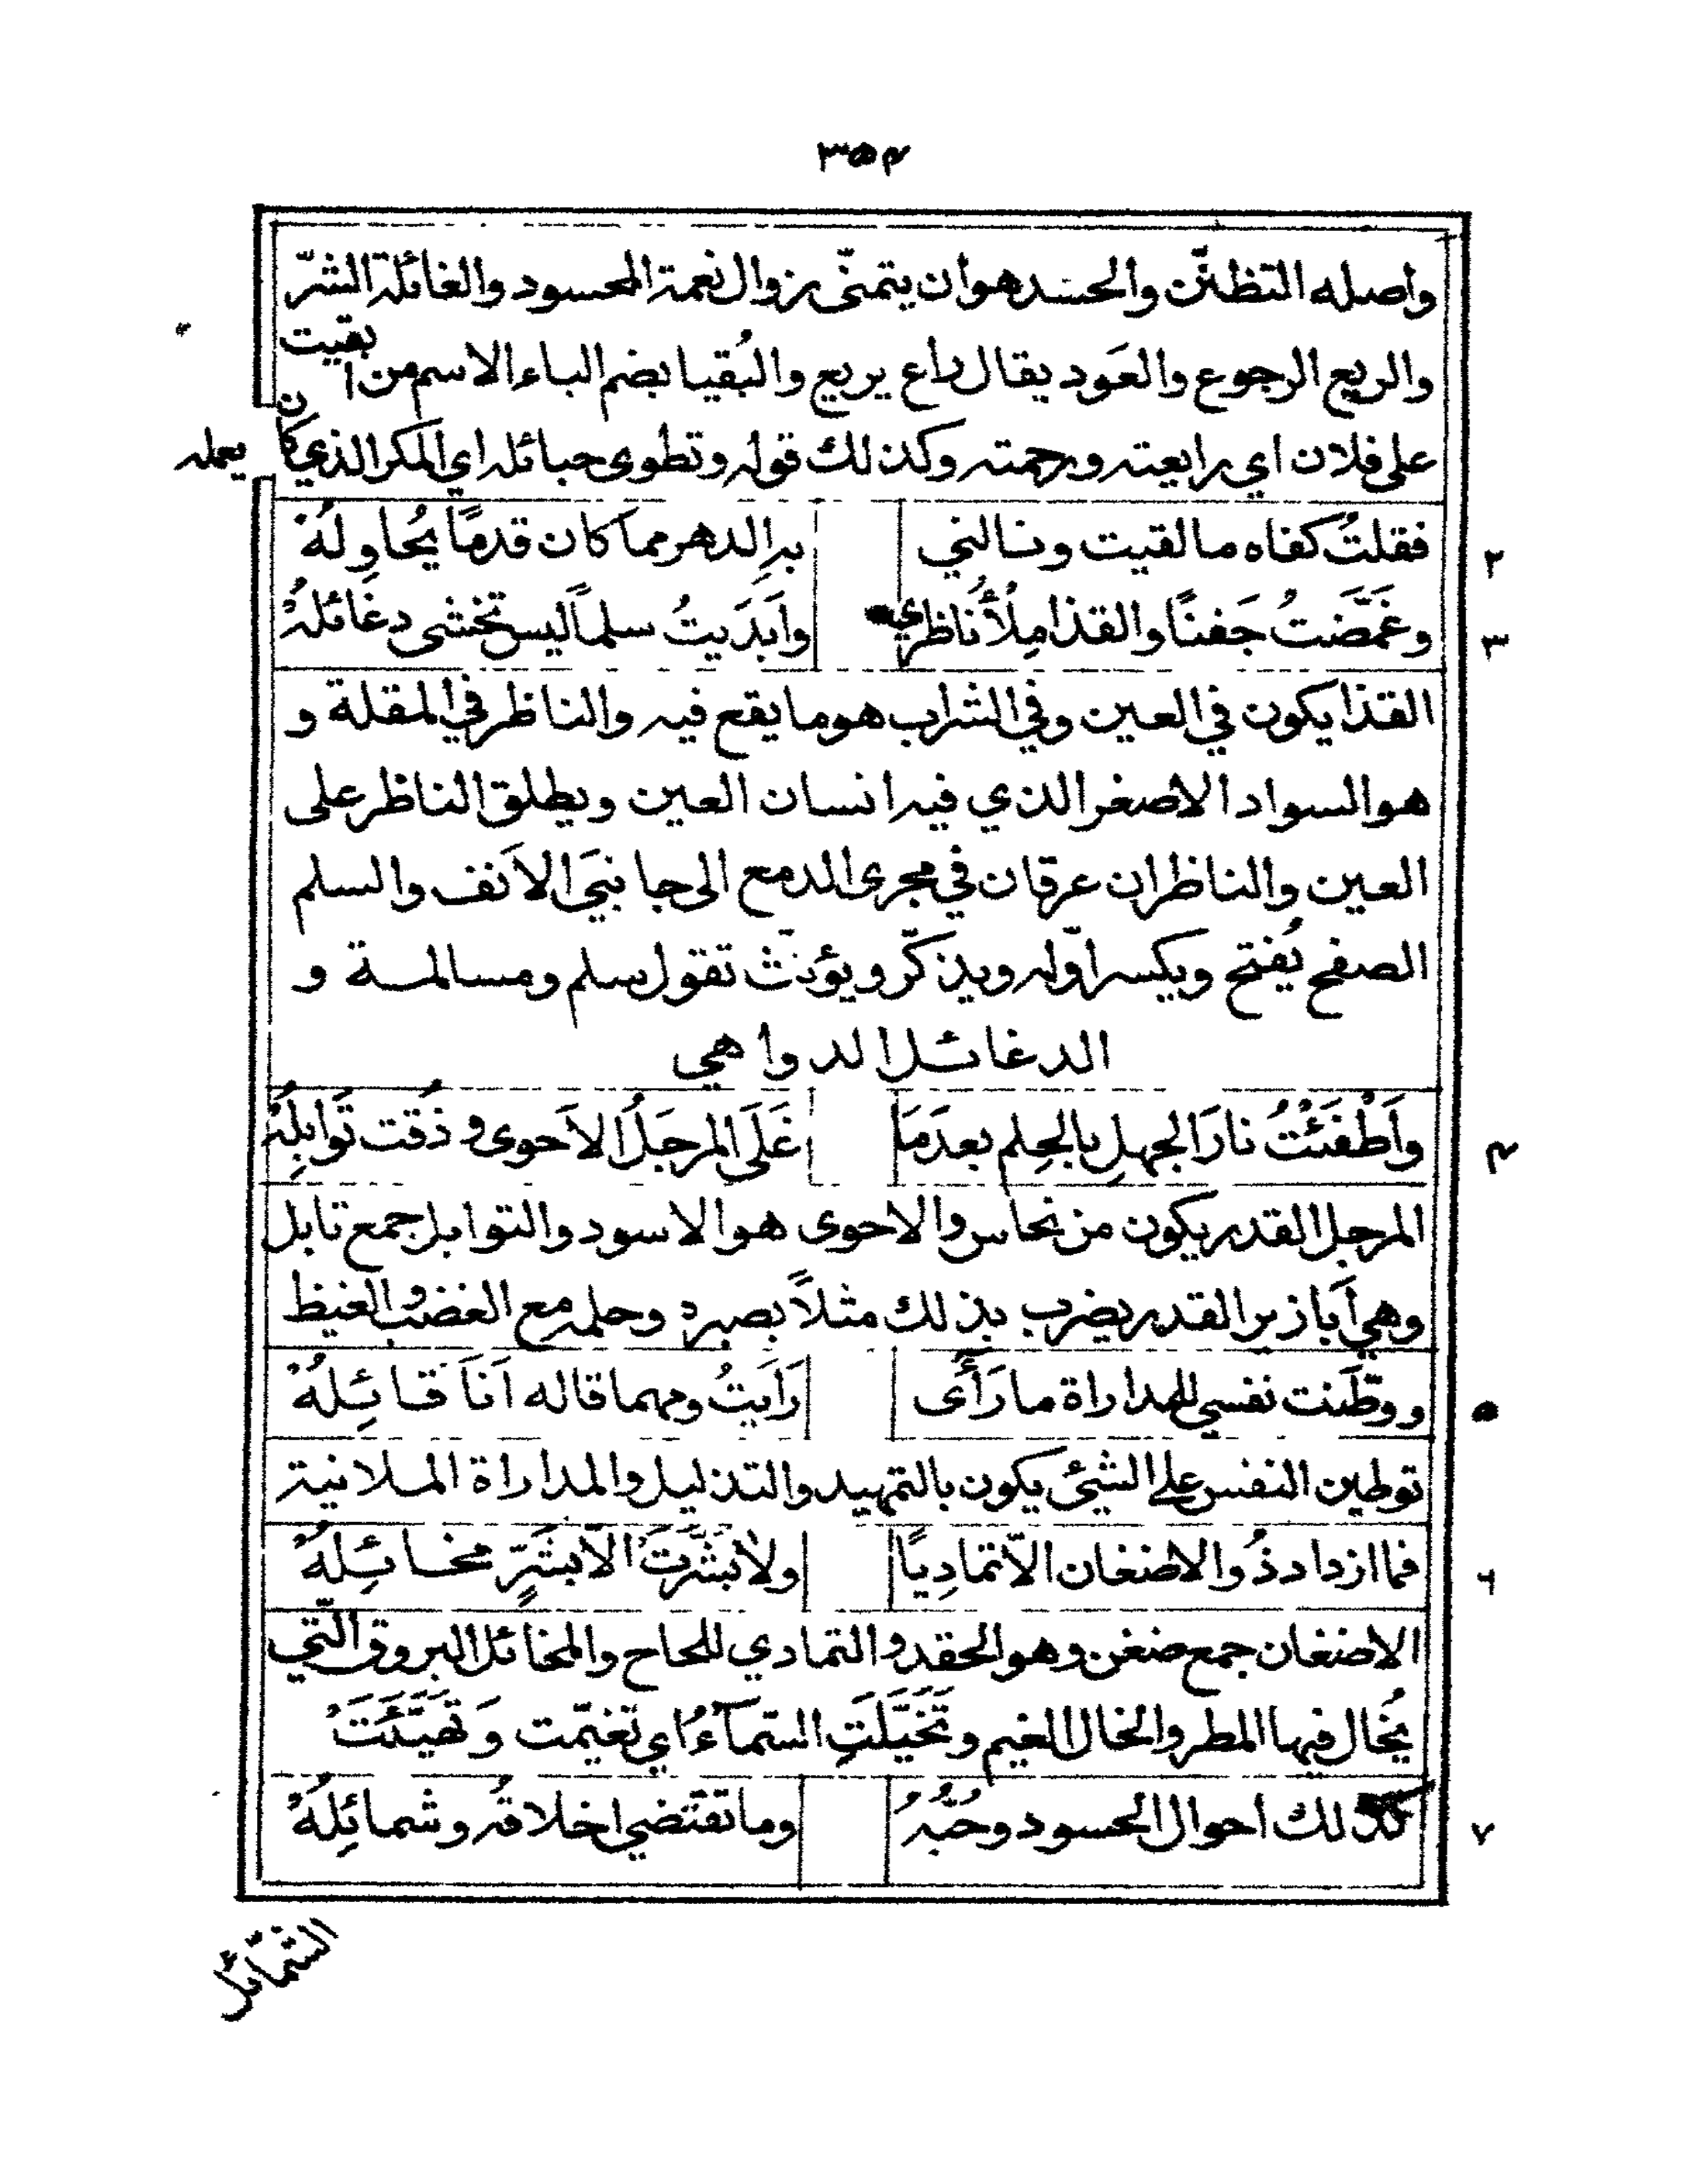 ٣٥٤
وأصله التظنّن والحسد هو أن يتمنّى زوال نعمة المحسود والغائلة الشرّ
والريع الرجوع والعَود يقال راع يريع والبُقيا بضم الباء الاسم من ابقيت
على فلان اي رابعته ورحمته وكذلك قوله وتطوى حبائله اي المكر الذي كان يعمله
٢ فقلتُ كفاه ما لقيت ونالني بهِ الدهر مما كان قدمًا يُحاوِلُهْ
٣ وغَمَّضتُ جَفنًا والقذا مِلأُ ناظري وأبدَيتُ سلمًا ليس تخشى دغائلهْ
القذا يكون في العين وفي الشراب هو ما يقع فيه والناظر في المقلة و
هو السواد الاصغر الذي فيه انسان العين ويطلق الناظر على
العين والناظران عرقان في مجرى الدمع الى جانبَي الاَنف والسلم
الصفح يُفتح ويكسر اوّله ويذكّر ويؤنّث تقول سلم ومسالمة و
الدغائل الدواهي
٤ وأَطْفَئْتُ نارَ الجهلِ بالحِلم بعدَمَا غَلَى المرجَلُ الاَحوى وذُقت تَوابِلُهْ
المرجل القدر يكون من نحاس والاحوى هو الاسود والتوابل جمع تابل
وهي أبازير القدر يضرب بذلك مثلاً بصبره وحلمه مع الغضب والغيظ
٥ ووطّنت نفسي للمداراة ما رَأَى رَاَيتُ ومهما قاله اَنَا قائِلُهْ
توطين النفس على الشيئ يكون بالتمهيد والتذليل والمداراة الملاينة
٦ فما ازداد ذُو الاضغان الاّ تمادِيًا ولا بَشَّرَتْ الاّ بشَرٍّ مخائِلُهْ
الاضغان جمع ضغن وهو الحقد والتمادي للحاح والمخائل البروق الّتي
يُخال فيها المطر والخال الغيم وتَخَيَّلَتِ السّمآءُ اي تغيّمت وَتهَيَّئَتْ
٧ كذلك احوال الحسود وحُبُّهُ وما تقتضي اخلاقُه وشمائِلُهْ
الشمائل